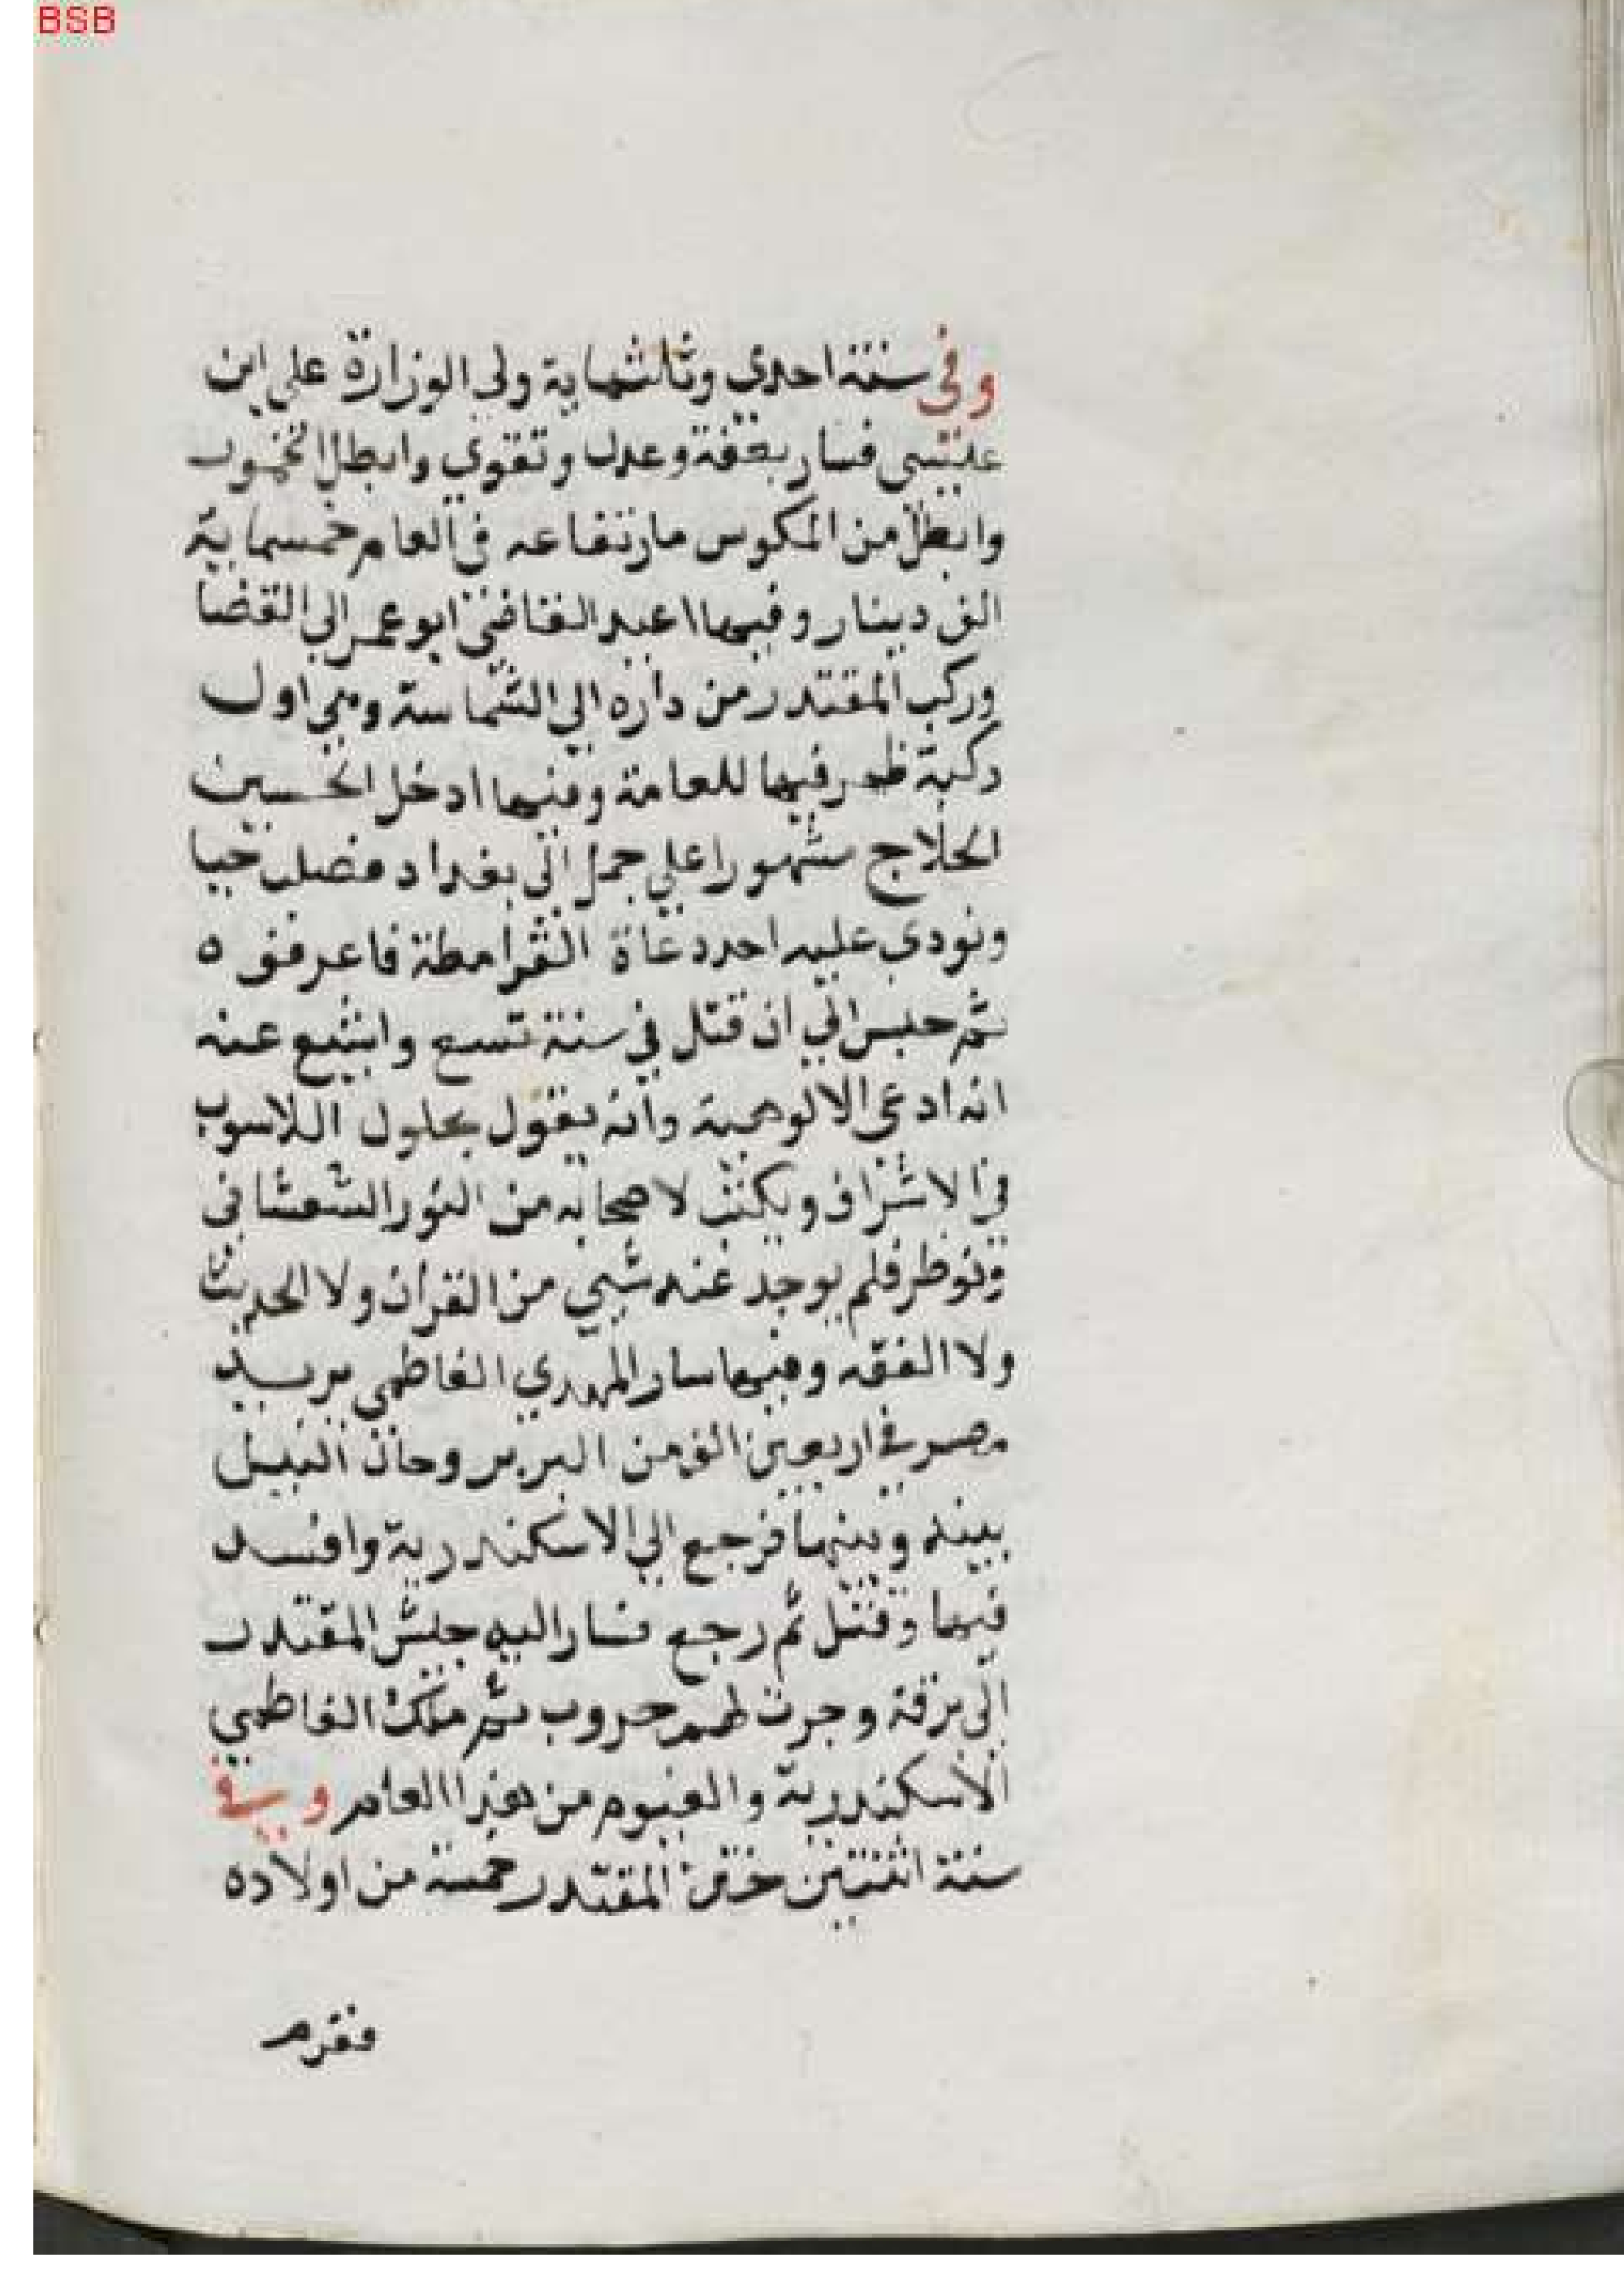 BSB
وفي سنة احدي وثلثماية ولي الوزارة علي ابن
عيسي فسار بعفة وعدل وتقوي وابطل الخمور
وابطل من المكوس ما ارتفاعه في العام خمسماية
الف دينار وفيها اعيد القاضي ابو عمر الي القضا
وركب المقتدر من داره الي الشماسة وهي اول
ركبة ظهر فيها للعامة وفيها ادخل الحسين
الحلاج مشهورا علي جمل الي بغداد فصلب حيا
ونودي عليه احد دعاة القرامطة فاعرفوه
ثم حبس الي ان قتل في سنة تسع واشيع عنه
انه ادعي الالوهية وانه يقول بحلول اللاهوت
في الاشراف ويكتب لاصحابه من النور الشعشاني
ونوظر فلم يوجد عنده شيي من القران ولا الحديث
ولا الفقه وفيها سار المهدي الفاطمي يريد
مصر في اربعين الف من البربر وحال النيل
بينه وبينها فرجع الي الاسكندرية وافسد
فيها وقتل ثم رجع فسار اليه جيش المقتدر
الي برقة وجرت لهم حروب ثم ملك الفاطمي
الاسكندرية والفيوم من هذا العام وفي
سنة اثنتين ختن المقتدر خمسة من اولاده
فغرم